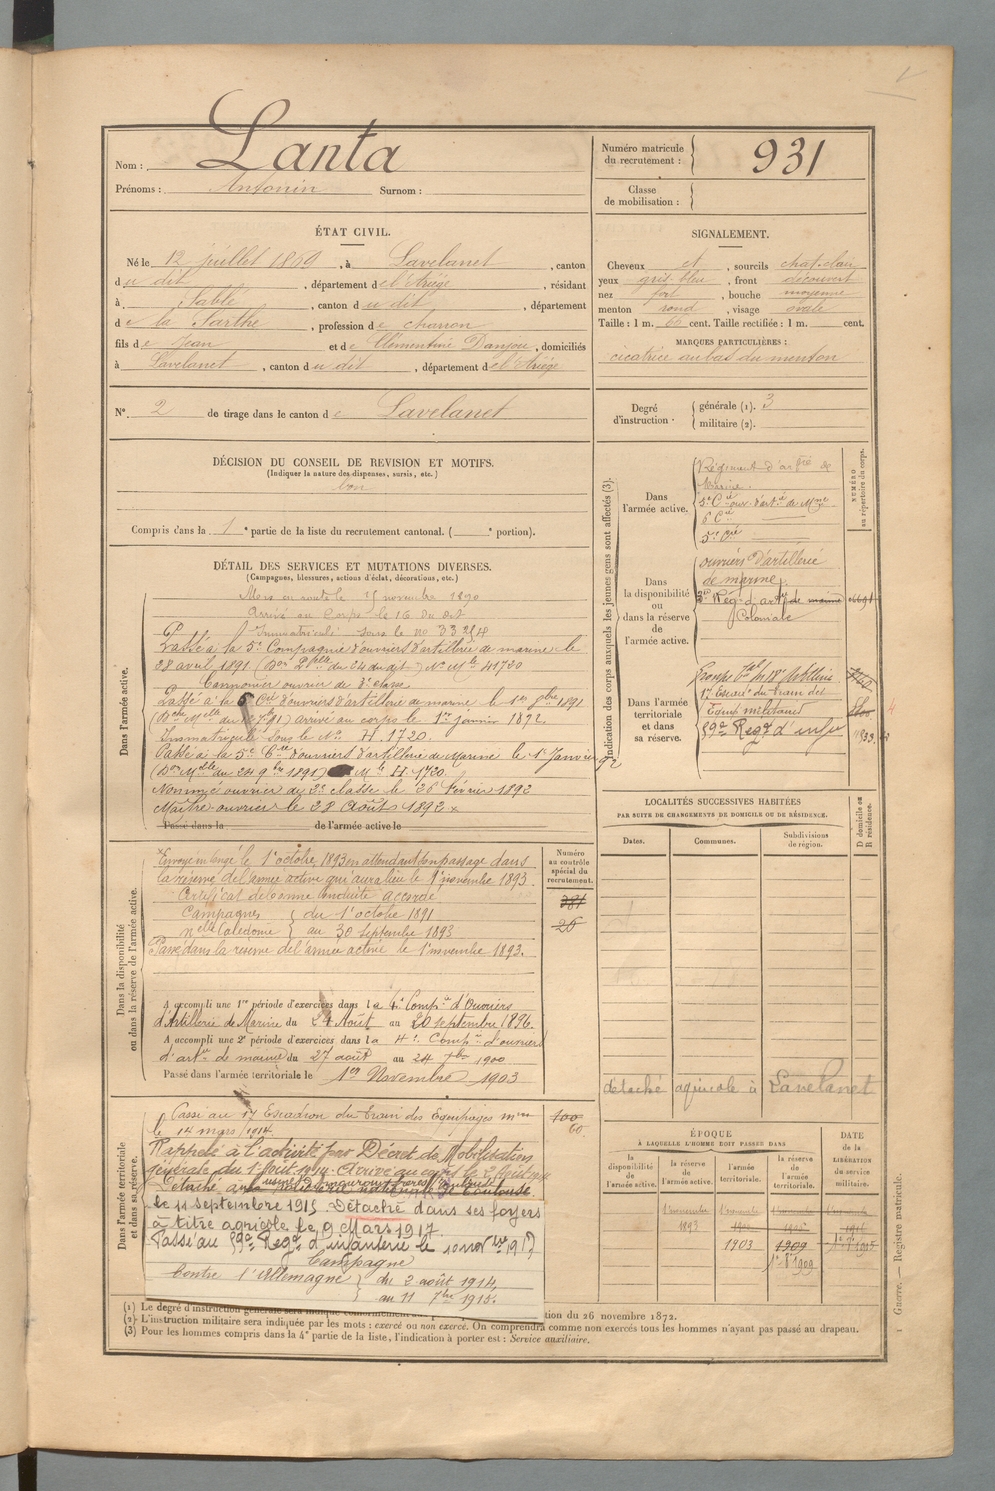 Nom : Lanta
Prénoms : Antonin Surnom :
Numéro matricule du recrutement : 931
Classe de mobilisation :
ÉTAT CIVIL.
Né le 12 juillet 1869, à Lavelanet, canton
du dit, département de l'Ariège, résidant
à Sablé, canton du dit, département
de la Sarthe, profession de
fils de Jean et de Clémentine Danjou, domiciliés
à Lavelanet, canton du dit, département de l'Ariège
N° 2 de tirage dans le canton de Lavelanet
SIGNALEMENT.
Cheveux et, sourcils chat. clair
yeux gris bleu, front découvert
nez fort, bouche moyenne
menton rond, visage ovale
Taille : 1 m. 65 cent. Taille rectifiée : 1 m. cent.
MARQUES PARTICULIÈRES :
cicatrice au bas du menton
Degré d'instruction
générale (1). 3
militaire (2).
DÉCISION DU CONSEIL DE REVISION ET MOTIFS.
(Indiquer la nature des dispenses, sursis, etc.)
bon
Compris dans la 1e partie de la liste du recrutement cantonal. ( e portion).
DÉTAIL DES SERVICES ET MUTATIONS DIVERSES.
(Campagnes, blessures, actions d'éclat, décorations, etc.)
Dans l'armée active.
Mis en route le 15 novembre 1890
Arrivé au Corps le 16 du dit
Immatriculé sous le no
Passé à la 5e Compagnie d'ouvriers d'artillerie de marine le
28 avril 1891 du 24 du dit) No Mle 41720
Cannonier ouvrier de 3e classe
Passé à la 6 Cie d'ouvriers d'artillerie de marine le 1er 1891
arrivé au corps le 1er janvier 1892.
Immatriculé sous le No H. 1720.
Passé à la 5e Cie d'ouvriers d'artillerie de Marine le 1er Janvier 92
(Don Mlle du 24 9bre 1891) Mle H. 1720.
Nommé ouvrier de 2e classe le 26 février 1892
Maître ouvrier le 28 Août 1892 x
Passé dans la de l'armée active le
Dans la disponibilité ou dans la réserve de l'armée active.
x Envoyé en congé le 1er octobre 1893 en attendant son passage dans
la réserve de l'armée active qui aura lieu le 1er novembre 1893.
Certificat de bonne conduite accordé
Campagnes du 1er octobre 1891
Nelle Calédonie au 30 septembre 1893
Passé dans la réserve de l'armée active le 1er novembre 1893.
A accompli une 1re période d'exercices dans la 4e Compie d'Ouvriers
d'Artillerie de Marine du 24 Août au 20 septembre 1896.
A accompli une 2e période d'exercices dans la 4e Compie d'ouvriers
d'artie de marine du 27 août au 24 7bre 1900
Passé dans l'armée territoriale le 1er Novembre 1903
Numéro au contrôle spécial du recrutement.
381
26
Dans l'armée territoriale et dans sa réserve.
Passé au 17 Escadron du train des Equipages mres
le 14 mars 1914
100
60
Rappelé à l'activité par Décret de Mobilisation
générale du 1er Août 1914. Arrivé au corps le 2 Août 1914
Détaché à la de Toulouse.
le 11 septembre 1915. Détaché dans ses foyers
à titre agricole le 9 Mars 1917
Passé au 59e Regt d'infanterie le 10 novbre 1917
Campagne
Contre l'Allemagne du 2 août 1914,
au 11 7bre 1915.
Indication des corps auxquels les jeunes gens sont affectés (3).
NUMÉRO au répertoire du corps.
Dans l'armée active.
Régiment d'artie de
Marine.
5e Cie ouv. d'artie de Mne
6 Cie
5e Cie
Dans la disponibilité ou dans la réserve de l'armée active.
ouvriers d'artillerie
de marine.
3e Rég. d'artie de marine
Coloniale
Dans l'armée territoriale et dans sa réserve.
17 Escadn du train des
Equip militaires
59e Regt d'infie
LOCALITÉS SUCCESSIVES HABITÉES
PAR SUITE DE CHANGEMENTS DE DOMICILE OU DE RÉSIDENCE.
Dates. Communes. Subdivisions de région. D domicile ou R résidence.
détaché agricole à Lavelanet
ÉPOQUE
À LAQUELLE L'HOMME DOIT PASSER DANS
la disponibilité de l'armée active.
la réserve de l'armée active.
l'armée territoriale.
la réserve de l'armée territoriale.
DATE de la LIBÉRATION du service militaire.
1893 1903 1909
(1) Le degré d'instruction générale sera indiqué tion du 26 novembre 1872.
(2) L'instruction militaire sera indiquée par les mots : exercé ou non exercé. On comprendra comme non exercés tous les hommes n'ayant pas passé au drapeau.
(3) Pour les hommes compris dans la 4e partie de la liste, l'indication à porter est : Service auxiliaire.
1 Guerre. — Registre matricule.